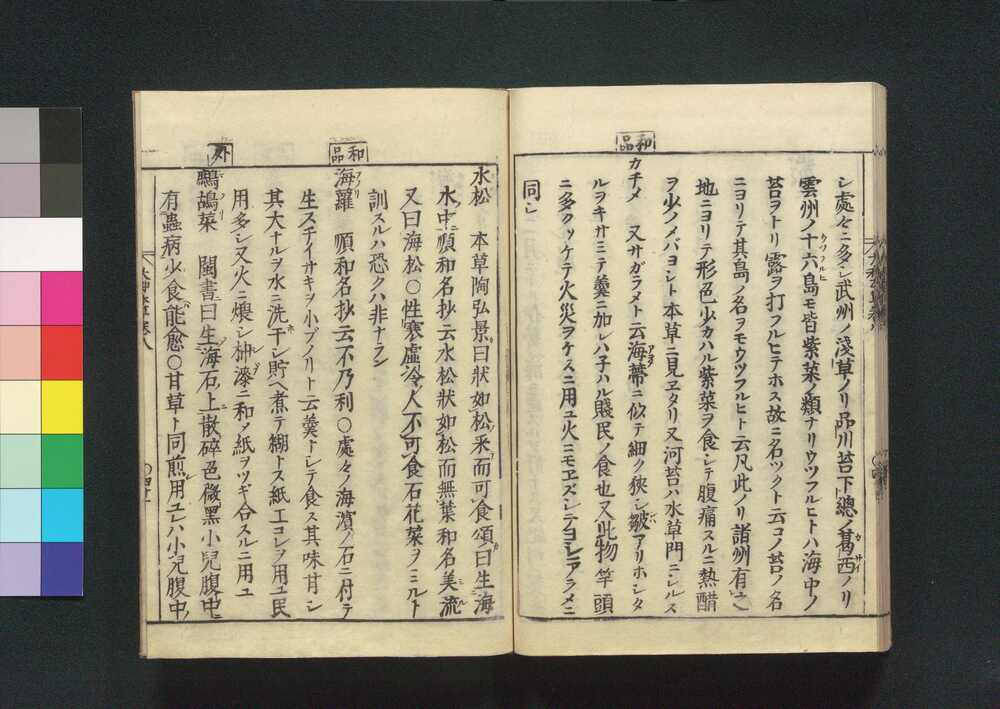 和品
シ處々ニ多シ武州ノ淺草ノリ品川苔下總ノ葛西ノリ
雲州ノ十六島モ皆紫菜ノ類ナリウツフルヒトハ海中ノ
苔ヲトリ露ヲ打フルヒテホス故ニ名ツクト云コノ苔ノ名
ニヨリテ其島ノ名ヲモウツフルヒト云凡此ノリ諸州有之
地ニヨリテ形色少カハル紫菜ヲ食シテ腹痛スルニ熱醋
ヲ少ノメバヨシト本草ニ見ヱタリ又河苔ハ水草門ニシルス
カチメ 又サガラメト云海帶ニ似テ細ク狹シ皺アリホシタ
ルヲキサミテ羹ニ加レハ子ハル賤民ノ食也又此物竿頭
ニ多クツケテ火災ヲケスニ用ユ火ニモヱズシテヨシアラメニ
同シ
水松 本草陶弘景曰狀如松釆而可食頌曰生海
水中順和名抄云水松狀如松而無葉和名美流
又曰海松○性寒虛冷人不可食石花菜ヲミルト
訓スルハ恐クハ非ナラン
和品
海蘿 順和名抄云不乃利○處々ノ海濱ノ石ニ付テ
生スチイサキヲ小ブノリト云羹トレテ食ス其味甘シ
其大ナルヲ水ニ洗干シ貯ヘ煮テ糊トス紙工コレヲ用ヱ民
用多シ又火ニ煨シ柹漆ニ和メ紙ヲツギ合スルニ用ユ
外
鷓鴣菜 閩書曰生海石上散碎色微黑小兒腹中
有蟲病少食能愈○甘草ト同煎用ユレハ小兒腹中ノ